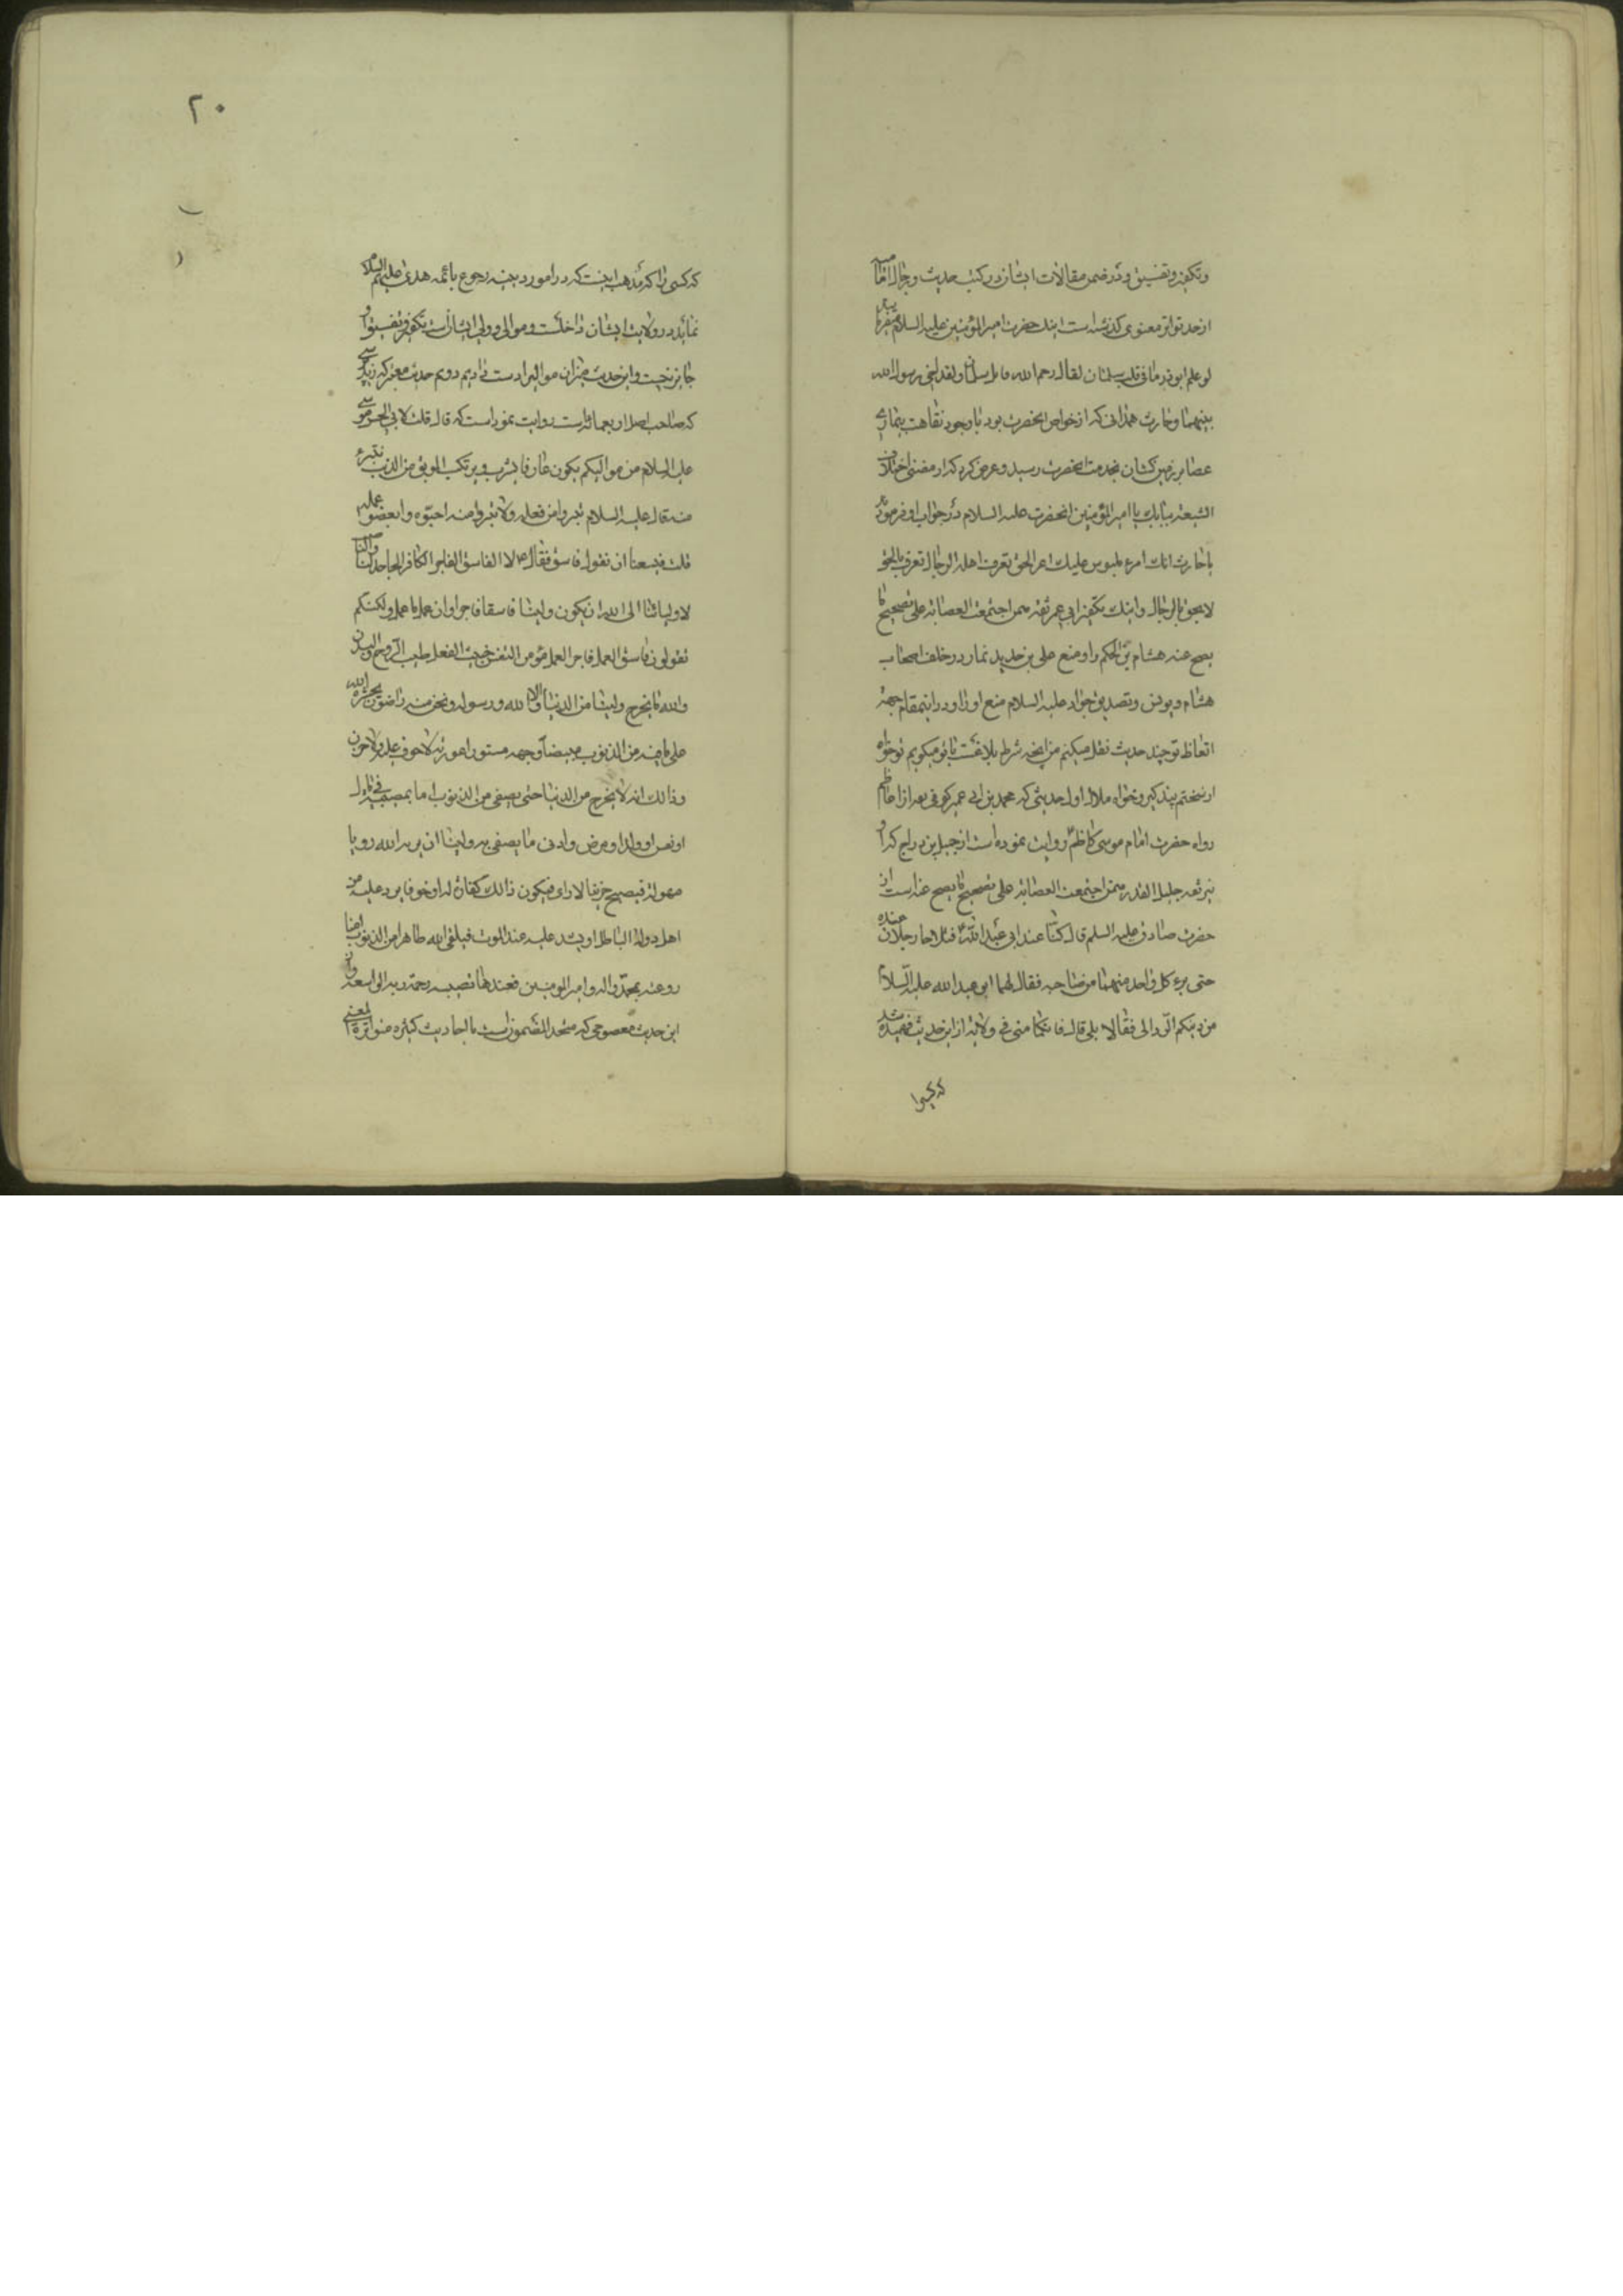 وتكفير وتفسيق در ضمن مقالات ايشان در كتب حديث ورجال
از حد تواتر معنوى گذشته است اينك حضرت امير المؤمنين عليه السلام
لو علم ابوذر ما فى قلب سلمان لقال رحم الله قاتل سلمان ولقد اخى رسول الله
بينهما وحارث همدانى كه از خواص انحضرت بود با وجود نقاهت بيمارى
عصا بر زمين كشان بخدمت انحضرت رسيد وعرض كرد كه از مضى اختلاف
الشيعة ببابك يا امير المؤمنين انحضرت عليه السلام در جواب او فرمود
يا حارث انك امرء ملبوس عليك اعر الحق تعرف اهله الرجال تعرف بالحق
لا الحق بالرجال واينك تكفير ابى عمير ثقه ممن اجتمعت العصابة على تصحيح ما
يصح عنه هشام بن الحكم را ومنع على بن حديد نماز در خلف اصحاب
هشام ويونس وتصديق جواد عليه السلام منع او را ودر اينمقام جهة
اتعاظ تو چند حديث نقل ميكنم من انچه شرط بلاغست با تو ميگويم تو خواه
از سخنم پند گير وخواه ملال اول حديثى كه محمد بن ابى عمير كوفى بعد از
رواه حضرت امام موسى كاظم روايت نموده است از جميل بن دراج كه او
نيز ثقه جليل القدر ممن اجتمعت العصابة على تصحيح ما يصح عنه است از
حضرت صادق عليه السلم قال كنا عند ابى عبد الله رجلان
حتى برء كل واحد منهما من صاحبه فقال لهما ابو عبد الله عليه السلام
من دينكم الرد الى فقالا بلى قال فانكما منى فى ولاية از اين حديث فهميده شد
كه كسيرا
٢٠
كه كسى را كه مذهب اينست كه در امور دينيه رجوع بائمه هدى عليهم السلام
نمايد در ولايت ايشان داخلست وموالى وولى ايشانست تكفير وتفسيق او
جايز نيست واين حديث ميزان موالى را دست داديم دويم حديث معتبر كه زيد
كه صاحب اصل از است روايت نموده است كه قال قلت لابى الحسن موسى
عليه السلام من مواليكم يكون عارفا يشرب ويرتكب الموبق من الذنب نتبرء
منه قال عليه السلام تبروا من فعله ولا تبروا منه احبوه وابغضوا عمله
قلت فيسعنا ان نقول فاسق فقال لا الفاسق الفاجر الكافر الجاحد لنا
لاوليائنا ابى الله ان يكون ولينا فاسقا فاجرا وان عمل ما عمل ولكنكم
تقولون فاسق العمل فاجر العمل مؤمن النفس خبيث الفعل طيب الروح والبدن
والله ما يخرج ولينا من الدنيا الا والله ورسوله ونحن منه راضون يحشره الله
على ما فيه من الذنوب مبيضا وجهه مستورا عورته لا خوف عليه ولا حزن
وذالك انه لا يخرج من الدنيا حتى يصفى من الذنوب اما بمصيبة فى مال
او نفس او ولد او مرض وادنى ما يصفى به ولينا ان يريه الله رويا
مهولة فيصبح حزينا لما راى فيكون ذالك كفارة له او خوفا يرد عليه من
اهل دولة الباطل او يشدد عليه عند الموت فيلقى الله طاهرا من الذنوب امنا
روعته بمحمد واله وامير المومنين فعندها تصيبه رحمة ربه الواسعة
اين حديث معصومى كه متحد المضمونست با احاديث كثيره متواترة المعنى